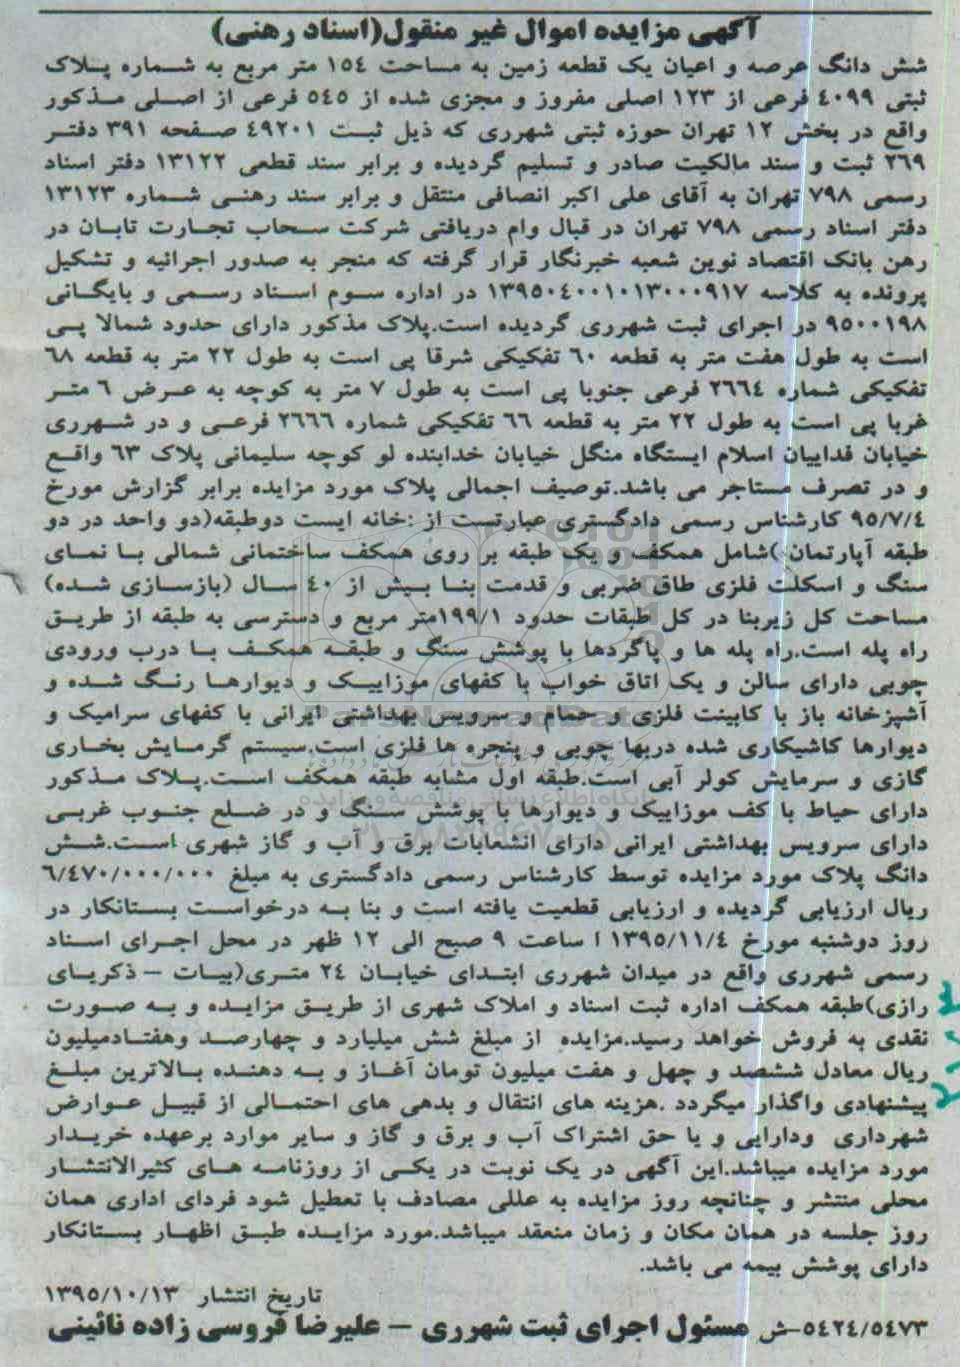 آگهی مزایده اموال غیر منقول(اسناد رهنی)
شش دانگ عرصه و اعیان یک قطعه زمین به مساحت ۱۵۴ متر مربع به شماره پلاک
ثبتی ۴۰۹۹ فرعی از ۱۲۳ اصلی مفروز و مجزی شده از ۵۴۵ فرعی از اصلی مذکور
واقع در بخش ۱۲ تهران حوزه ثبتی شهرری که ذیل ثبت ۴۹۲۰۱ صفحه ۳۹۱ دفتر
۲۶۹ ثبت و سند مالکیت صادر و تسلیم گردیده و برابر سند قطعی ۱۳۱۲۲ دفتر اسناد
رسمی ۷۹۸ تهران به آقای علی اکبر انصافی منتقل و برابر سند رهنی شماره ۱۳۱۲۳
دفتر اسناد رسمی ۷۹۸ تهران در قبال وام دریافتی شرکت سحاب تجارت تابان در
رهن بانک اقتصاد نوین شعبه خبرنگار قرار گرفته که منجر به صدور اجرائیه و تشکیل
پرونده به کلاسه ۱۳۹۵۰۴۰۰۱۰۱۳۰۰۰۹۱۷ در اداره سوم اسناد رسمی و بایگانی
۹۵۰۰۱۹۸ در اجرای ثبت شهرری گردیده است.پلاک مذکور دارای حدود شمالا پی
است به طول هفت متر به قطعه ۶۰ تفکیکی شرقا پی است به طول ۲۲ متر به قطعه ۶۸
تفکیکی شماره ۲۶۶۴ فرعی جنوبا پی است به طول ۷ متر به کوچه به عرض ۶ متر
غربا پی است به طول ۲۲ متر به قطعه ۶۶ تفکیکی شماره ۲۶۶۶ فرعی و در شهرری
خیابان فداییان اسلام ایستگاه منگل خیابان خدابنده لو کوچه سلیمانی پلاک ۶۳ واقع
و در تصرف مستاجر می باشد.توصیف اجمالی پلاک مورد مزایده برابر گزارش مورخ
۹۵/۷/۴ کارشناس رسمی دادگستری عبارتست از :خانه ایست دوطبقه(دو واحد در دو
طبقه آپارتمان )شامل همکف و یک طبقه بر روی همکف ساختمانی شمالی با نمای
سنگ و اسکلت فلزی طاق ضربی و قدمت بنا بیش از ۴۰ سال (بازسازی شده)
مساحت کل زیربنا در کل طبقات حدود ۱۹۹/۱متر مربع و دسترسی به طبقه از طریق
راه پله است.راه پله ها و پاگردها با پوشش سنگ و طبقه همکف با درب ورودی
چوبی دارای سالن و یک اتاق خواب با کفهای موزاییک و دیوارها رنگ شده و
آشپزخانه باز با کابینت فلزی و حمام و سرویس بهداشتی ایرانی با کفهای سرامیک و
دیوارها کاشیکاری شده دربها چوبی و پنجره ها فلزی است.سیستم گرمایش بخاری
گازی و سرمایش کولر آبی است.طبقه اول مشابه طبقه همکف است.پلاک مذکور
دارای حیاط با کف موزاییک و دیوارها با پوشش سنگ و در ضلع جنوب غربی
دارای سرویس بهداشتی ایرانی دارای انشعابات برق و آب و گاز شهری است.شش
دانگ پلاک مورد مزایده توسط کارشناس رسمی دادگستری به مبلغ ۶/۴۷۰/۰۰۰/۰۰۰
ریال ارزیابی گردیده و ارزیابی قطعیت یافته است و بنا به درخواست بستانکار در
روز دوشنبه مورخ ۱۳۹۵/۱۱/۴ ا ساعت ۹ صبح الی ۱۲ ظهر در محل اجرای اسناد
رسمی شهرری واقع در میدان شهرری ابتدای خیابان ۲۴ متری(بیات – ذکریای
رازی)طبقه همکف اداره ثبت اسناد و املاک شهری از طریق مزایده و به صورت
نقدی به فروش خواهد رسید.مزایده از مبلغ شش میلیارد و چهارصد وهفتادمیلیون
ریال معادل ششصد و چهل و هفت میلیون تومان آغاز و به دهنده بالاترین مبلغ
پیشنهادی واگذار میگردد .هزینه های انتقال و بدهی های احتمالی از قبیل عوارض
شهرداری ودارایی و یا حق اشتراک آب و برق و گاز و سایر موارد برعهده خریدار
مورد مزایده میباشد.این آگهی در یک نوبت در یکی از روزنامه های کثیرالانتشار
محلی منتشر و چنانچه روز مزایده به عللی مصادف با تعطیل شود فردای اداری همان
روز جلسه در همان مکان و زمان منعقد میباشد.مورد مزایده طبق اظهار بستانکار
دارای پوشش بیمه می باشد.
تاریخ انتشار ۱۳۹۵/۱۰/۱۳
۵۴۲۴/۵۴۷۳-ش مسئول اجرای ثبت شهرری – علیرضا فروسی زاده نائینی